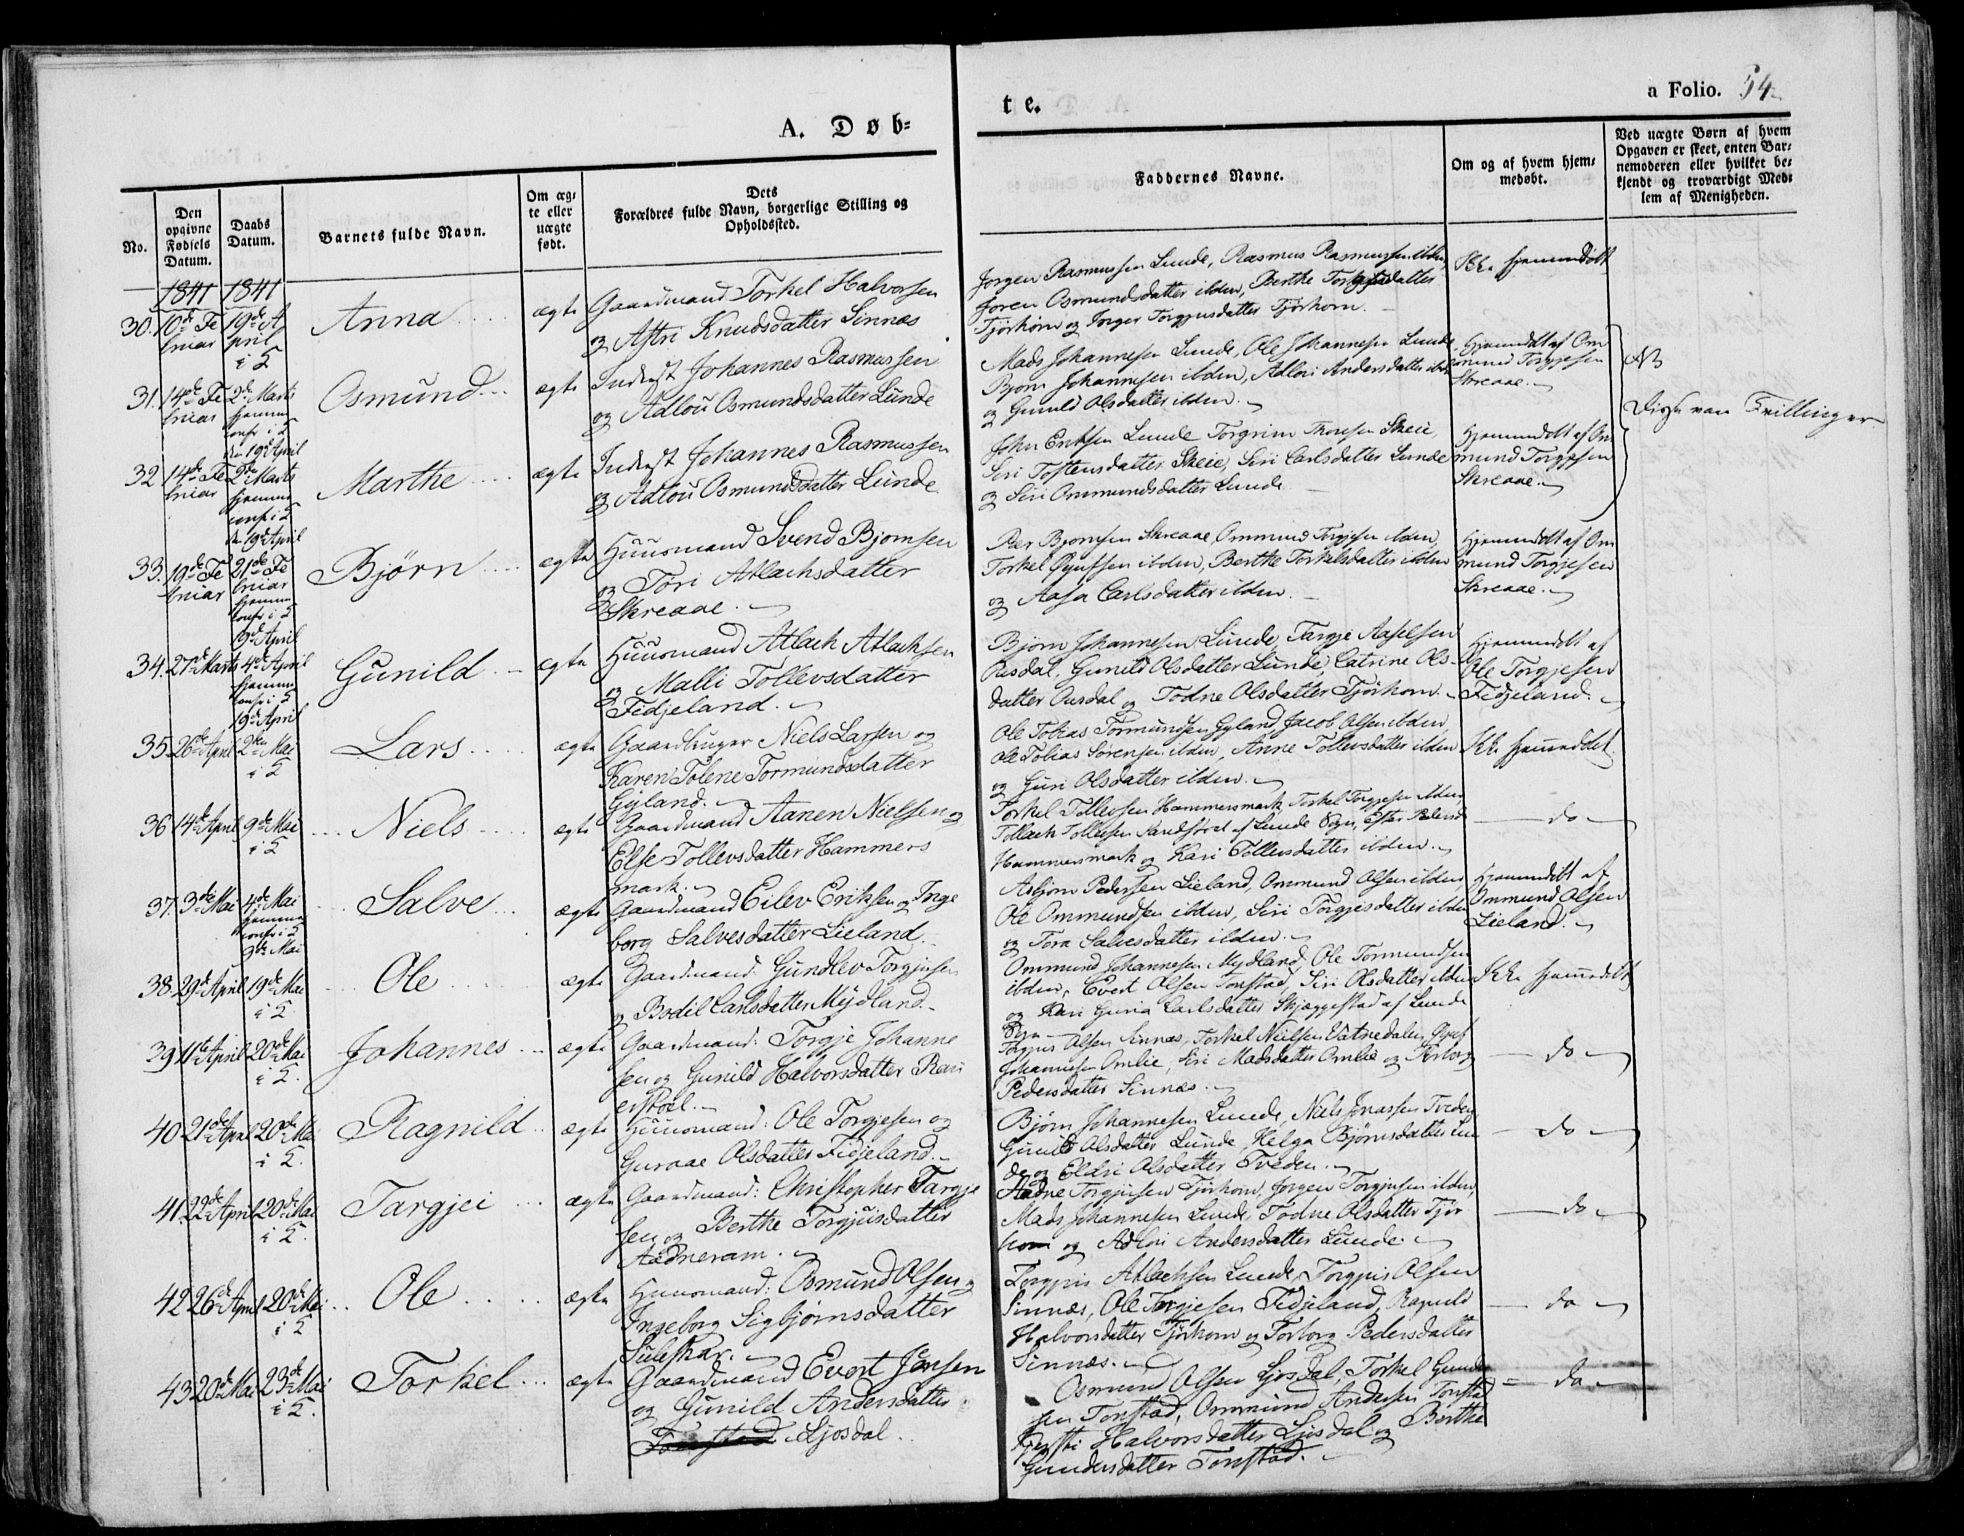 A. Døb-
te.
a Folio. 54
No.
Den opgivne Fødsels Datum.
Daabs Datum.
Barnets fulde Navn.
Om æg-
te eller
uægte
født.
Dets
Forældres fulde Navn, borgerlige Stilling og
Opholdssted.
Faddernes Navne.
Om og af hvem hjem-
medøbt.
Ved uægte Børn af hvem
Opgaven er skeet, enten Bar-
nemoderen eller hvilket be-
kjendt og troværdigt Med-
lem af Menigheden.
1841 1841
30. 10de Fe
bruar
19de A
pril
i K
Anna
ægte
Gaardmand Torkel Halvorsen
og Astri Knudsdatter Sinnæs
Jørgen Rasmussen Lunde, Rasmus Rasmussen ibden,
Joren Osmundsdatter ibden, Berthe
Tjørhom og Torgjusdatter Tjørhom.
Ikke hjemmedøbt
31. 14de Fe
bruar
2de Marts
hjemme
conf. i K
den 19de April
Osmund
ægte
Inderst Johannes Rasmussen
og Adlou Osmundsdatter Lunde
Mads Johannesen Lunde, Ole Johannesen Lunde,
Bjørn Johannesen ibden, Adlou Andersdatter
og Gunild Olsdatter ibden.
Hjemmedøbt af Om
mund Torgjesen
Skreaae.
NB
Disse var Trillinger
32 14de Fe
bruar
2de Marts
hjemme
conf. i K
den 19de April
Marthe
ægte
Inderst Johannes Rasmussen
og Adlou Osmundsdatter Lunde
John Eriksen Lunde Torgrim Thoresen Skeie,
Siri Tostensdatter Skeie, Siri Carlsdatter Lunde
og Siri Ommundsdatter Lunde
Hjemmedøbt af Om
mund Torgjesen
Skreaae.
33. 19de Fe
bruar
21de Fe
bruar
hjemme
conf. i K
19de April
Bjørn
ægte
Huusmand Svend Bjørnsen
og Tori Atlachsdatter
Skreaae.
Per Bjørnsen Skreaae, Ommund Torgjesen ibden,
Torkel ibden, Berthe Torkelsdatter ibden
og Aasa Carlsdatter ibden.
Hjemmedøbt af Om
mund Torgjesen
Skreaae.
34. 27de Marts
4de April
hjemme
conf. i K
19de April
Gunild
ægte
Huusmand Atlach Atlachsen
og Malli Tollevsdatter
Fidjeland.
Bjørn Johannesen Lunde, Targje Axelsen
Ousdal, Gunild Olsdatter Lunde, Catrine Ols-
datter Ousdal og Todne Olsdatter Tjørhom.
Hjemmedøbt af
Ole Torgjesen
Fidjeland.
35 26de April
2den Mai
i K
Lars
ægte
Gaardbruger Niels Larsen og
Karen Tolene Tormundsdatter
Gyland.
Ole Tobias Tormundsen Gyland, Jacob Olsen ibden,
Ole Tobias Sørensen ibden, Anne Tollevsdatter ibden
og Guri Olsdatter ibden.
Ikke hjemmedøbt
36 14de April
9de Mai
i K
Niels
ægte
Gaardmand Aanen Nielsen og
Else Tollevsdatter Hammers
mark.
Torkel Tollevsen Hammersmark, Torkel Torgjesen ibden,
Tollach Tollevsen af Lunde Sogn, Pedersd
Hammersmark og Kari Tollevsdatter ibden.
do
37. 3de Mai
4de Mai
hjemme
conf. i K
9de Mai
Salve
ægte
Gaardmand Eilev Eriksen og Inge
borg Salvesdatter Lieland.
Asbjørn Pedersen Lieland, Ommund Olsen ibden,
Ole Ommundsen ibden, Siri Torgjesdatter ibden
og Tora Salvesdatter ibden.
Hjemmedøbt af
Ommund Olsen
Lieland.
38. 29de April
19de Mai
i K
Ole
ægte
Gaardmand Gundlev Torgjusen
og Bodil Carlsdatter Mydland.
Ommund Johannesen Mydland, Ole Tormundsen
ibden, Evert Olsen Tonstad, Siri Olsdatter ibden
og Karen Guria Carlsdatter Skjæggestad af Lunde
Sogn
Ikke hjemmedøbt
39 11te April
20de Mai
i K
Johannes
ægte
Gaardmand: Torgje Johanne
sen og Gunild Halvorsdatter
Torgius Olsen Sinnæs, Torkel Nielsen Vatnedalen,
Johannesen Omlie, Siri Madsdatter Omlie og Torborg
Pedersdatter Sinnæs.
do
40 21de April
20de Mai
i K
Ragnild
ægte
Huusmand: Ole Torgjesen og
Guraae Olsdatter Fidjeland.
Bjørn Johannesen Lunde, Niels Jonassen Tveden,
Gunild Olsdatter Lunde, Helga Bjørnsdatter Lun
de og Eldri Olsdatter Tveden.
do
41. 22de April
20de Mai
i K
Targjei
ægte
Gaardmand: Christopher Targje
sen og Berthe Torgjusdatter
Aadneram.
Aadne Torgjusen Tjørhom, Jørgen Torgjusen ibden,
Mads Johannesen Lunde, Todne Olsdatter Tjør
hom og Adlou Andersdatter Lunde.
do
42 26de April
20de Mai
i K
Ole
ægte
Huusmand: Osmund Olsen og
Ingeborg Sigbjørnsdatter
Suleskar.
Torgjus Atlachsen Lunde, Torgjus Olsen
Sinnæs, Ole Torgjesen Fidjeland, Ragnild
Halvorsdatter Tjørhom og Torborg Pedersdatter
Sinnæs.
do
43 20de Mai
23de Mai
i K.
Torkel
ægte
Gaardmand Evert Jensen
og Gunild Andersdatter
Ljosdal.
Osmund Olsen Ljosdal, Torkel Gunder
sen Tonstad, Ommund Andersen Tonstad
Kjersti Halvorsdatter Ljosdal og Berthe
Gundersdatter Tonstad.
do